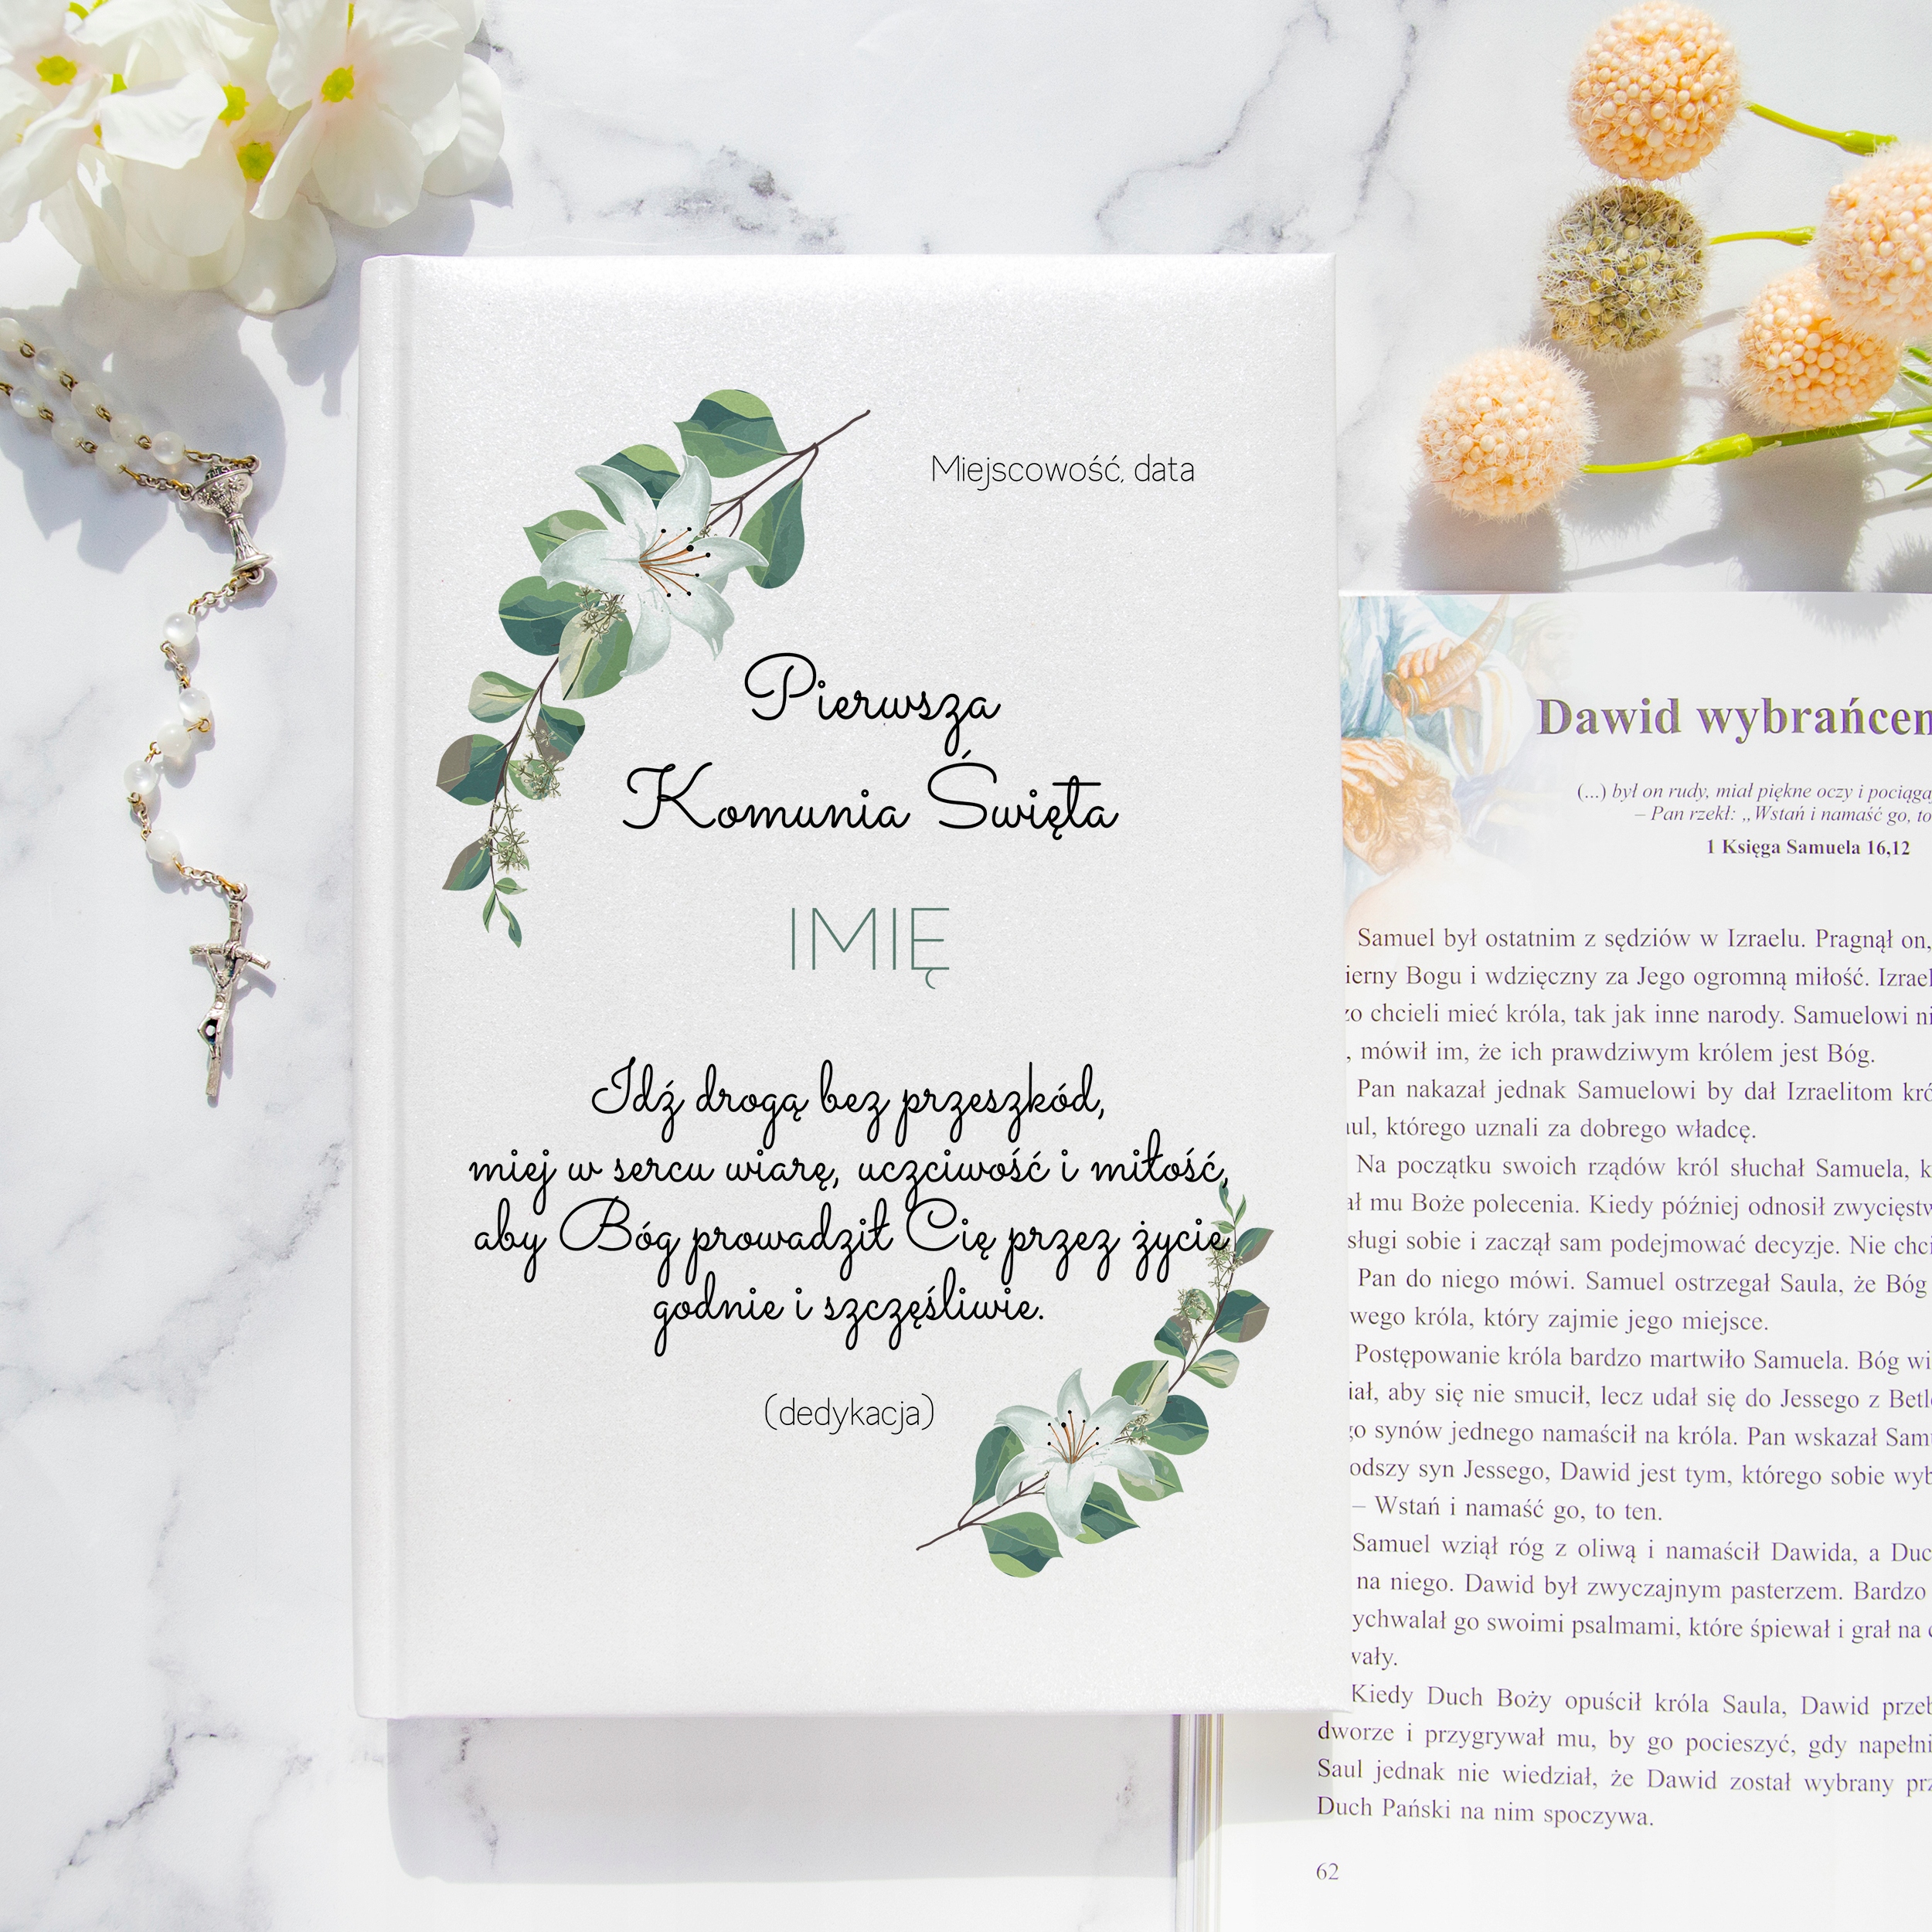 Miejscowość, data
Pierwsza
Komunia Święta
IMIĘ
Idź drogą bez przeszkód,
miej w sercu wiarę, uczciwość i miłość,
aby Bóg prowadził Cię przez życie
godnie i szczęśliwie.
(dedykacja)
Dawid wybrańcem
(...) był on rudy, miał piękne oczy i
– Pan rzekł: „Wstań i namaść go, to
1 Księga Samuela 16,12
Samuel był ostatnim z sędziów w Izraelu. Pragnął on,
Bogu i wdzięczny za Jego ogromną miłość.
chcieli mieć króla, tak jak inne narody. Samuelowi
, mówił im, że ich prawdziwym królem jest Bóg.
Pan nakazał jednak Samuelowi by dał Izraelitom
którego uznali za dobrego władcę.
Na początku swoich rządów król słuchał Samuela,
mu Boże polecenia. Kiedy później odnosił
sługi sobie i zaczął sam podejmować decyzje. Nie
Pan do niego mówi. Samuel ostrzegał Saula, że Bóg
wego króla, który zajmie jego miejsce.
Postępowanie króla bardzo martwiło Samuela. Bóg
aby się nie smucił, lecz udał się do Jessego z
synów jednego namaścił na króla. Pan wskazał
odszy syn Jessego, Dawid jest tym, którego sobie
– Wstań i namaść go, to ten.
Samuel wziął róg z oliwą i namaścił Dawida, a
na niego. Dawid był zwyczajnym pasterzem. Bardzo
ychwalał go swoimi psalmami, które śpiewał i grał na
wały.
Kiedy Duch Boży opuścił króla Saula, Dawid
dworze i przygrywał mu, by go pocieszyć, gdy
Saul jednak nie wiedział, że Dawid został wybrany
Duch Pański na nim spoczywa.
62